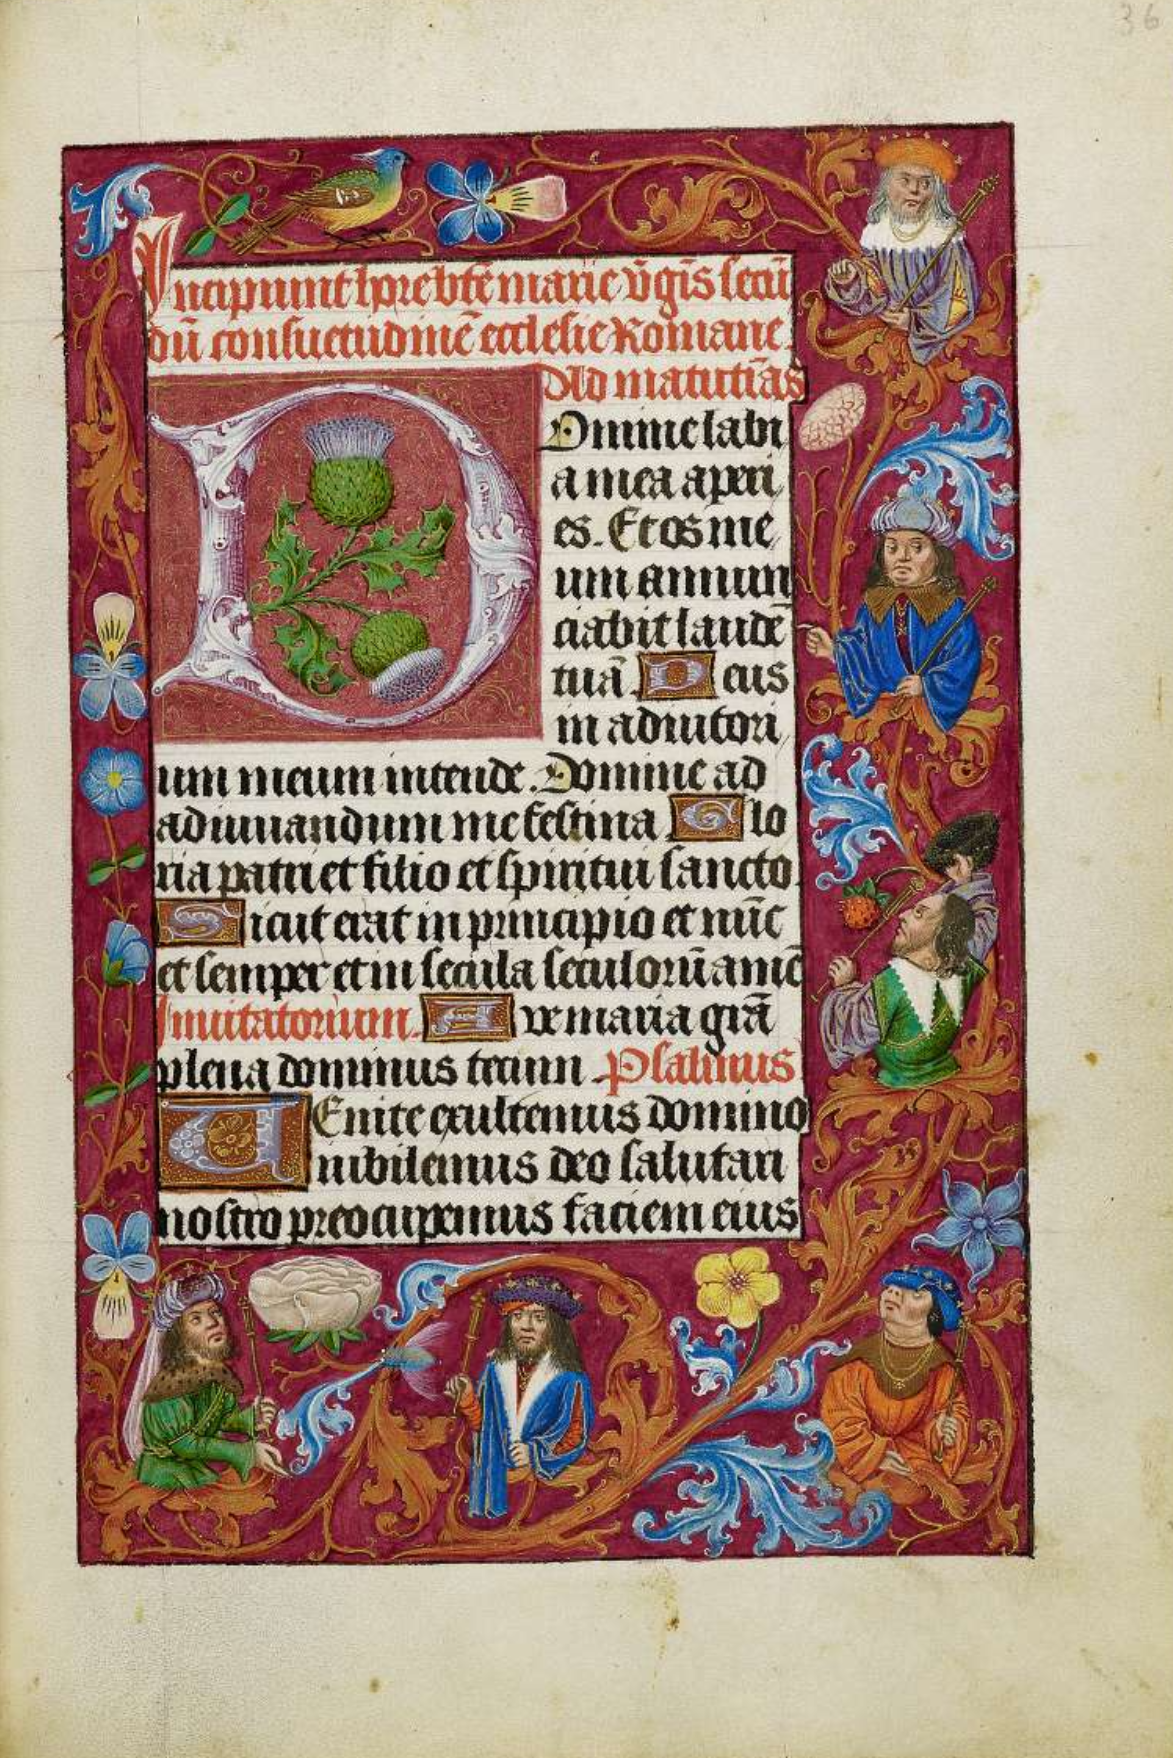 36
Incipiunt hore bte᷑ marie v̄gīs secū
dū consuetudinē ecclesie Romane.
Ad matutīas
Domine labi
a mea aperi
es. Et os me
um annun
ciabit laudē
tuā. Deus
in adiutori
um meum intende. Domine ad
adiuuandum me festina. Glo
ria patri et filio et spiritui sancto.
Sicut erat in principio et nūc
et semper et in secula seculorū amē
Inuitatorium. Aue maria grā
plena dominus tecum. Psalmus
Venite exultemus domino
iubilemus deo salutari
nostro preocupemus faciem eius